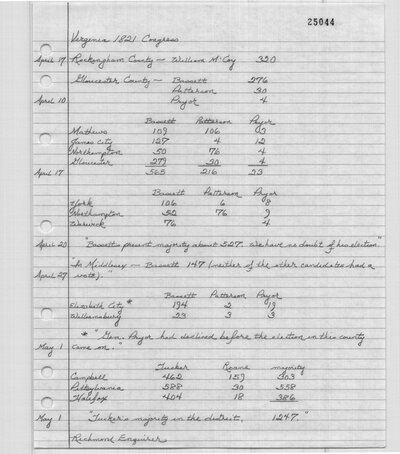 25044
Virginia 1821 Congress
April 17 Rockingham County — William McCoy 320
Gloucester County — Bassett 276
Patterson 30
April 10 Pryor 4
Bassett Patterson Pryor
Mathews 109 106 3
James City 127 4 12
Northampton 50 76 4
Gloucester 279 30 4
April 17 565 216 23
Bassett Patterson Pryor
York 106 6 8
Northampton 52 76 9
Warwick 76 4
April 20 "Bassett's present majority about 527. We have no doubt of his election."
"In Middlesex — Bassett 147 (neither of the other candidates had a
April 27 vote)."
Bassett Patterson Pryor
Elizabeth City * 194 2 19
Williamsburg 23 3 3
* "Gen. Pryor had declined before the election in this county
May 1 came on."
Tucker Roane majority
Campbell 462 159 303
Pittsylvania 588 30 558
Halifax 404 18 386
May 1 "Tucker's majority in the district, 1247."
Richmond Enquirer